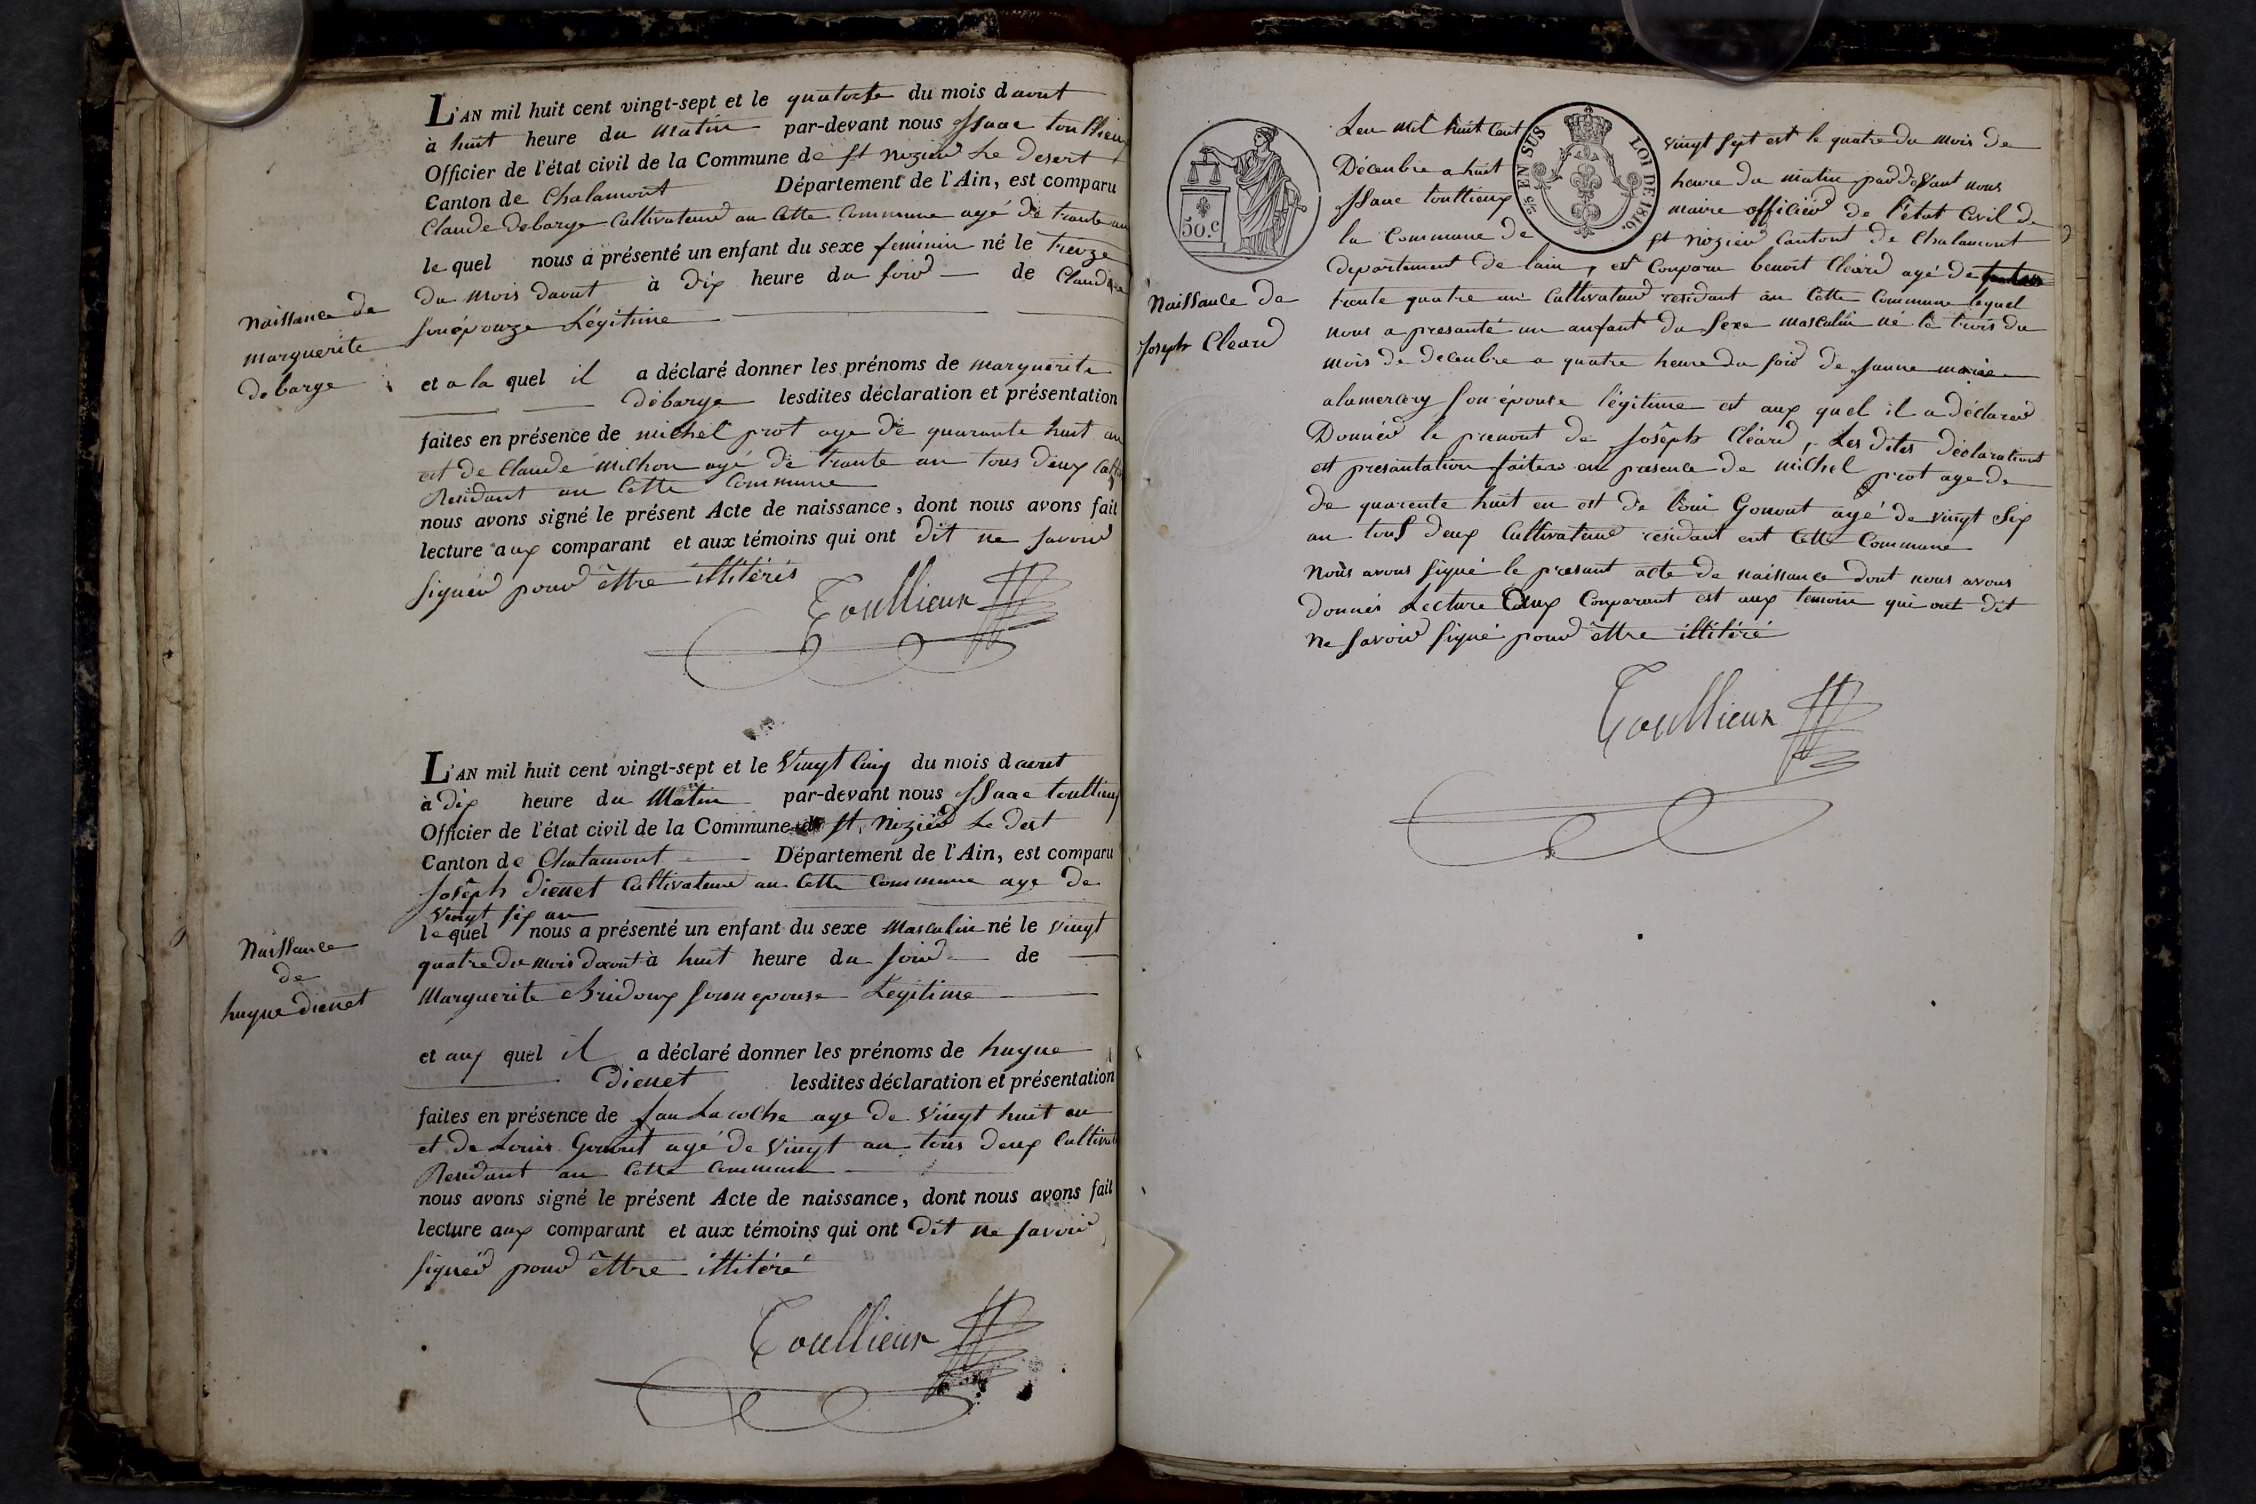 L'AN mil huit cent vingt-sept et le quatorse du mois d aout
à huit heure du Matin par-devant nous Isaac toullieux
Officier de l'état civil de la Commune de st nizier Le desert
Canton de Chalamont Département de l'Ain, est comparu
Claude debarge Cultivateur an Cette Commune agé de trante an
le quel nous a présenté un enfant du sexe feminin né le treize
du mois daout à dix heure du soir de Claudine
son épouze Légitime
Naissance de
marguerite
debarge
et a la quel il a déclaré donner les prénoms de marguerite
debarge lesdites déclaration et présentation
faites en présence de michel prot age de quarante huit an
est de Claude michon agé de trante an tous deux
Residant an Cette Commune
nous avons signé le présent Acte de naissance, dont nous avons fait
lecture aux comparant et aux témoins qui ont dit ne savoir
signer pour êttre illitérés
Toullieux
L'AN mil huit cent vingt-sept et le Vingt Cinq du mois d aout
à dix heure du Matin par-devant nous Isaac toullieux
Officier de l'état civil de la Commune de st Nizier Le dest
Canton de Chalamont Département de l'Ain, est comparu
Joseph dienet Cultivateur an Cette Commune age de
Vingt six an
le quel nous a présenté un enfant du sexe Masculin né le vingt
quatre du mois daout à huit heure du soir de
Marguerite Bridoux sonn epouse Legitime
Naissance
de
hugue dienet
et aux quel il a déclaré donner les prénoms de hugue
dienet lesdites déclaration et présentation
faites en présence de Jan Laroche age de Vingt huit an
et de Louis Gonout agé de Vingt an tous deux Cultivat
Residant an Cette Commune
nous avons signé le présent Acte de naissance, dont nous avons fait
lecture aux comparant et aux témoins qui ont dit ne savoir
signer pour êttre illitéré
Toullieux
50.C
2/5 EN SUS LOI DE 1816.
Lan mil huit Cent vingt sept est le quatre du mois de
Décenbre a huit heure du matin pardevant nous
Isaac toullieux maire officiér de l'état Civil de
la Commune de st nizier Cantont de Chalamont
departement de lain, est Conparu benoit Cléard agé de
trante quatre an Cultivateur residant an Cette Commune lequel
nous a presanté un anfant du Sexe masculin né le trois du
mois de decenbre a quatre heure du soir de Janne marie
alamercery son épouse légitime est aux quel il a déclarer
Donnér le prenont de Joseph Cléard, Les dites déclarationt
est presantation faites en presence de michel prot age de
de quarente huit en est de loui Gonont agé de vingt Six
an tous deux Cultivateur residant ent Cette Commune
Nous avons signé le presant acte de naissance dont nous avons
donnér Lecture aux Conparant est aux temoin qui ont dit
ne savoir signé pour êttre illitéré
Naissance de
Joseph Cleard
Toullieux